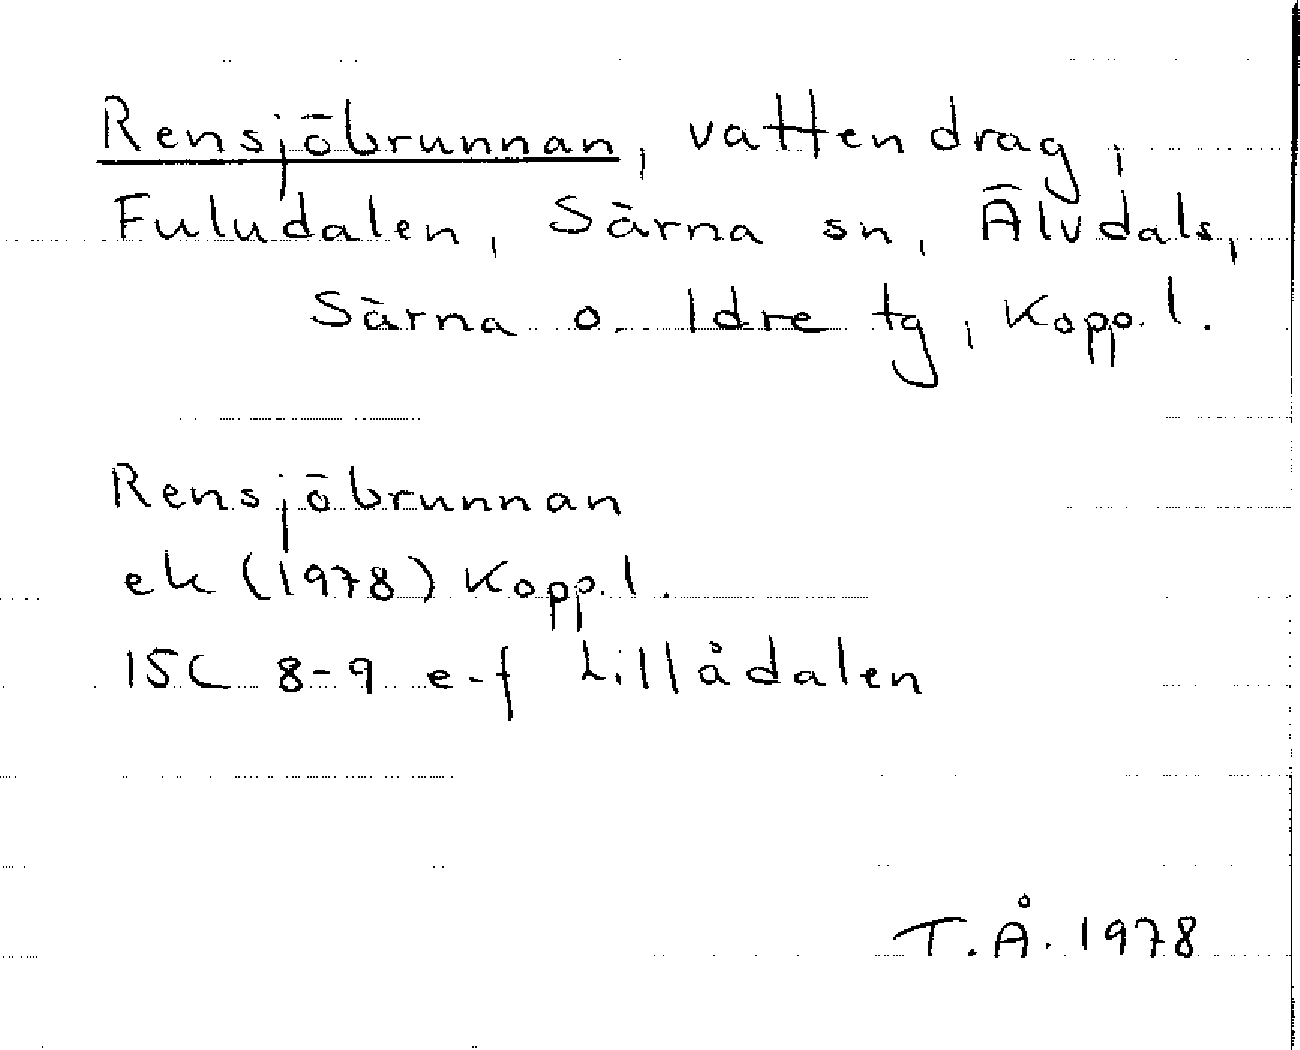 Rensjöbrunnan, vattendrag,
Fuludalen, Särna sn, Älvdals,
Särna o. Idre tg, Kopp. l.
Rensjöbrunnan
ek (1978) Kopp. l.
15C 8-9 e-f Lillådalen
T.Å. 1978